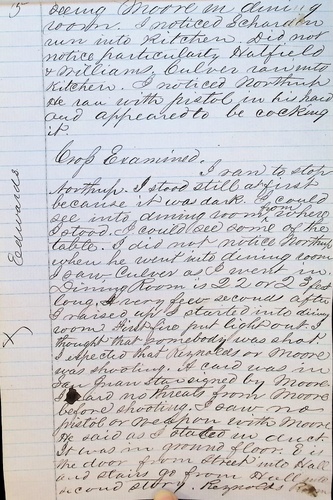 5
seeing Moore in dining
room. I noticed Scharden
run into kitchen Did not
notice particularly Hatfield
& Williams, Culver ran into
Kitchen. I noticed Northup
He ran with pistol in his hand
and appeared to be cocking
it.
Cross Examined.
I ran to stop
Northup. I stood still at first
because it was dark. I could
see into dining room from where
I stood. I could see some of the
table. I did not notice Northup
when he went into dining room
I saw Culver as I went in
Dining Room is 22 or 23 feet
long. A very few seconds after
I raised up I started into dining
room First fire put light out I
thought that somebody was shot.
I expected that Reynolds or Moore
was shooting. A card was in
San Juan Star signed by Moore
I heard no threats from Moore
before shooting. I saw no
pistol or weapon with Moore
He said as I stated in
It was in ground floor.
the door from street into Hall
and stairs go from Hall
second story. Reynolds
Edwards
X